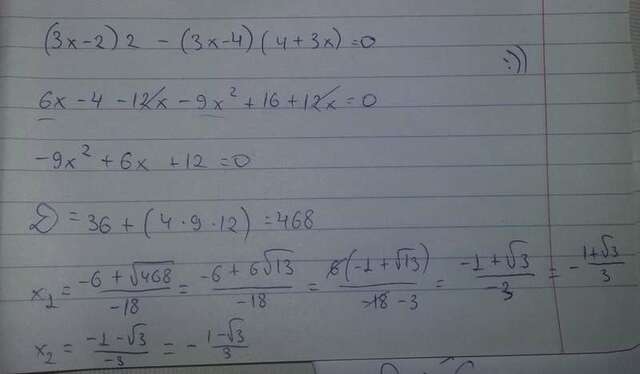 (3x-2)2 - (3x-4)(4+3x)=0
:))
6x - 4 - 12x - 9x² + 16 + 12x = 0
-9x² + 6x + 12 = 0
D = 36 + (4·9·12) = 468
x₁ = (-6 + √468)/(-18) = (-6 + 6√13)/(-18) = 6(-1 + √13)/(-18 -3) = (-1 + √3)/(-3) = - (1+√3)/3
x₂ = (-1 - √3)/(-3) = - (1-√3)/3